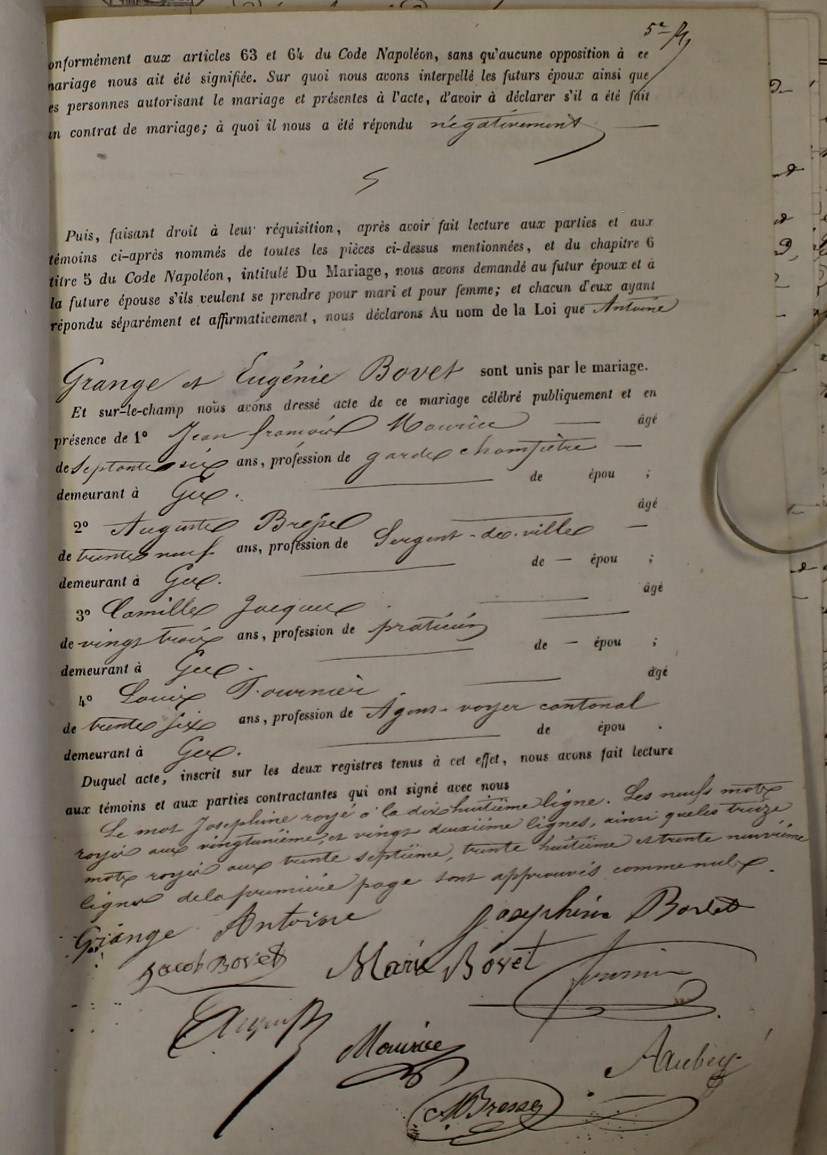 onformément aux articles 63 et 64 du Code Napoléon, sans qu'aucune opposition à ce
mariage nous ait été signifiée. Sur quoi nous avons interpellé les futurs époux ainsi que
es personnes autorisant le mariage et présentes à l'acte, d'avoir à déclarer s'il a été fait
un contrat de mariage; à quoi il nous a été répondu négativement
Puis, faisant droit à leur réquisition, après avoir fait lecture aux parties et aux
témoins ci-après nommés de toutes les pièces ci-dessus mentionnées, et du chapitre 6
titre 5 du Code Napoléon, intitulé Du Mariage, nous avons demandé au futur époux et à
la future épouse s'ils veulent se prendre pour mari et pour femme; et chacun d'eux ayant
répondu séparément et affirmativement, nous déclarons Au nom de la Loi que Antoine
Grange et Eugénie Bovet sont unis par le mariage.
Et sur-le-champ nous avons dressé acte de ce mariage célébré publiquement et en
présence de 1° Jean françois Maurice âgé
de Septante six ans, profession de garde champêtre
demeurant à Gex. de épou ;
2° Auguste âgé
de trente neuf ans, profession de Sergent-de-ville
demeurant à Gex. de — épou ;
3° Camille Jacques âgé
de vingt trois ans, profession de praticien
demeurant à Gex. de — épou ;
4° Louis Fournier âgé
de trente six ans, profession de Agent-voyer cantonal
demeurant à Gex. de épou .
Duquel acte, inscrit sur les deux registres tenus à cet effet, nous avons fait lecture
aux témoins et aux parties contractantes qui ont signé avec nous
Le mot Joséphine rayé à la dix huitième ligne. Les neufs mots
rayés aux vingtunième, et vingt deuxième lignes, ainsi que les treize
mots rayés aux trente septième, trente huitième et trente neuvième
lignes de la première page sont approuvés comme nuls.
Grange Antoine Joséphine Bovet
Jacob Bovet Marie Bovet
Maurice